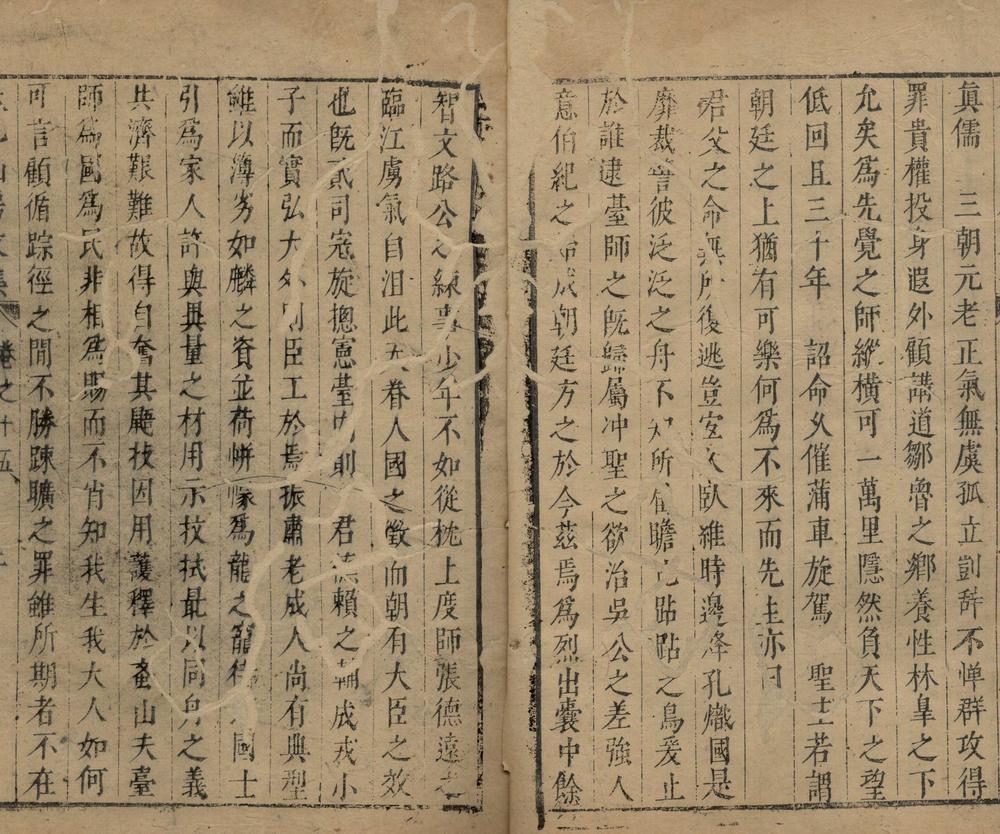 真儒　三朝元老正氣無虞孤立剴辭不憚群攻得
罪貴權投身遐外顧講道鄒魯之鄉養性林皐之下
允矣爲先覺之師縱橫可一萬里隱然負天下之望
低回且三十年　詔命攵催蒲車旋駕　聖主若謂
朝廷之上猶有可樂何爲不來而先生亦曰
君父之命無所復逃豈宜久臥維時邊烽孔熾國是
靡裁訾彼泛泛之舟不知所屆瞻此跕跕之鳥爰止
於誰逮臺師之旣歸屬冲聖之欲治吳公之差強人
意伯紀之 成朝廷方之於今茲焉爲烈出囊中餘
智文路公之練事少年不如從枕上度師張德遠之
臨江虜氣自沮此天眷人國之徵而朝有大臣之效
也旣貳司寇旋摠憲臺 前　君德賴之輔成戎小
子而實弘大 則臣工於焉振肅老成人尚有典型
雖以薄劣如麟之資並荷帡幪爲龍之寵待 國士
引爲家人許與異量之材用示抆拭最以同舟之義
共濟艱難故得自奮其鼯技因用護釋於蚉山夫臺
師爲國爲民非相爲賜而不肖知我生我大人如何
可言顧循踪徑之間不勝踈曠之罪雖所期者不在
卷之十五